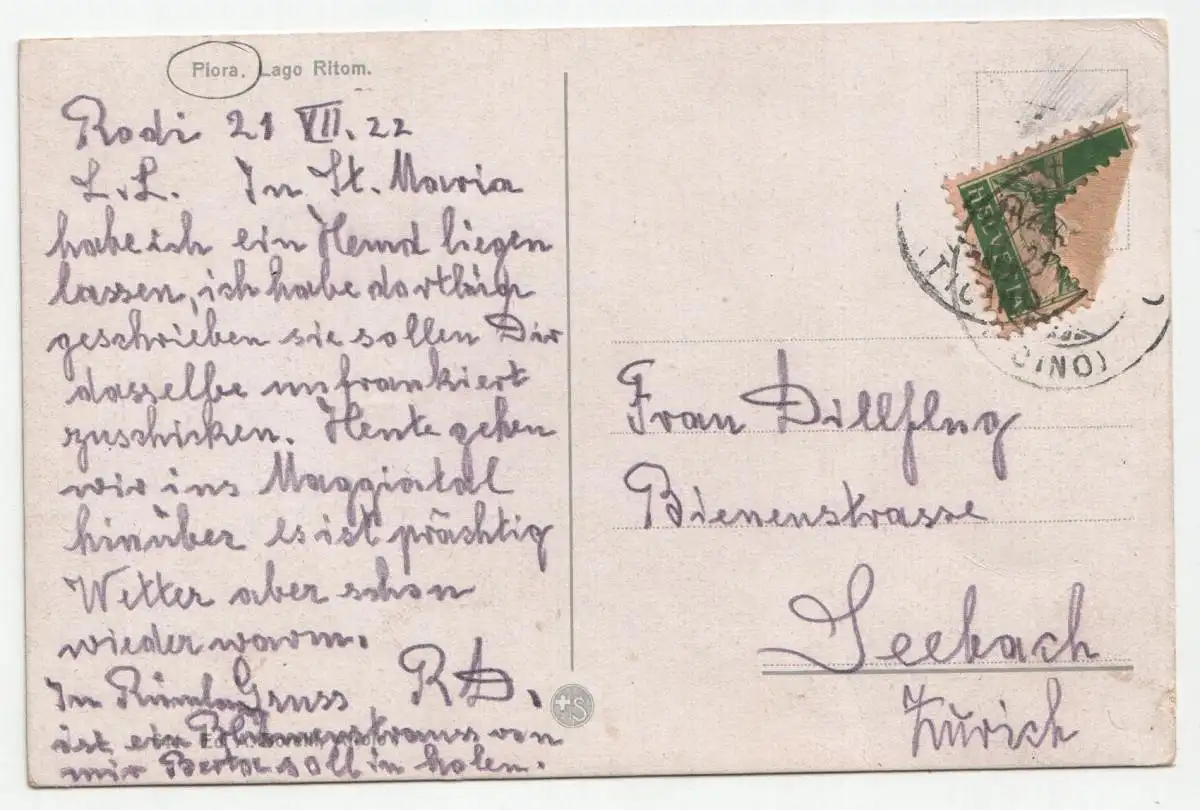 Piora. Lago Ritom.
Rodi 21 VII. 22
L. L. In St. Maria
habe ich ein Hemd liegen
lassen, ich habe dorthin
geschrieben sie sollen Dir
dasselbe unfrankiert
zuschicken. Heute gehen
wir ins Maggiatal
hinüber es ist prächtig
Wetter aber schon
wieder warm.
Gruss RD.
In
ist ein Blumenstrauss von
mir Berta soll in holen.
+S
HELVETIA
(TICINO)
Frau Dillflug
Bienenstrasse
Seebach
Zürich